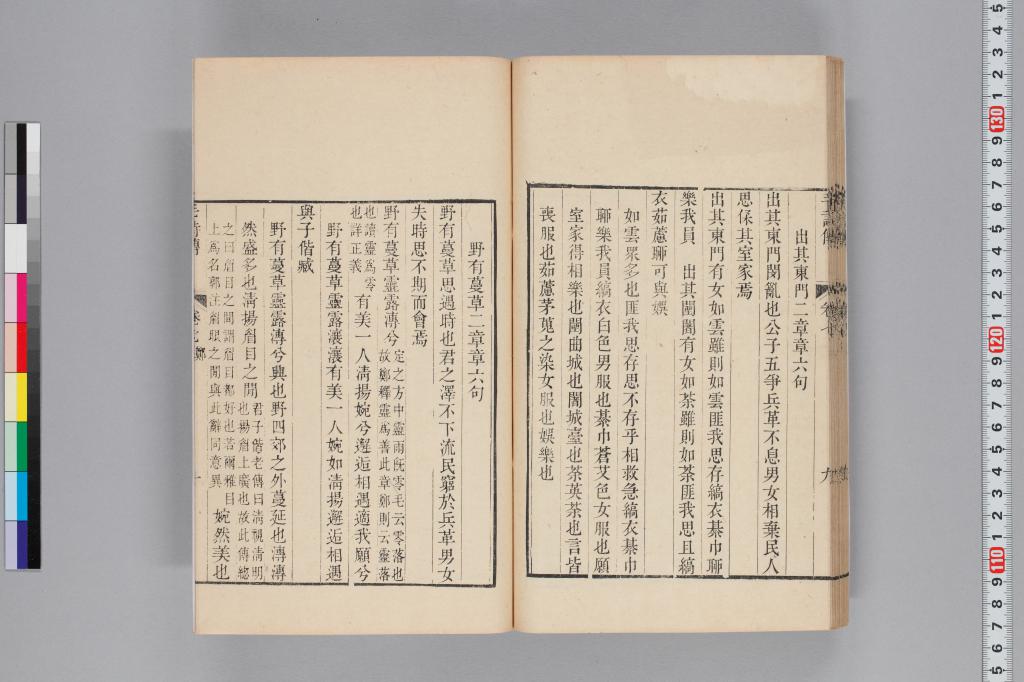 出其東門二章章六句
出其東門閔亂也公子五爭兵革不息男女相棄民人
思保其室家焉
出其東門有女如雲雖則如雲匪我思存縞衣綦巾聊
樂我員　出其闉闍有女如荼雖則如荼匪我思且縞
衣茹藘聊可與娛
如雲眾多也匪我思存思不存乎相救急縞衣綦巾
聊樂我員縞衣白色男服也綦巾蒼艾色女服也願
室家得相樂也闉曲城也闍城臺也荼英荼也言皆
喪服也茹藘茅蒐之染女服也娛樂也
野有蔓草二章章六句
野有蔓草思遇時也君之澤不下流民窮於兵革男女
失時思不期而會焉
野有蔓草靈露漙兮
定之方中靈雨旣零毛云零落也
故鄭釋靈爲善此章鄭則云靈落
也讀靈爲零
也詳正義
有美一人淸揚婉兮邂逅相遇適我願兮
野有蔓草靈露瀼瀼有美一人婉如淸揚邂逅相遇
與子偕臧
野有蔓草靈露漙兮興也野四郊之外蔓延也漙漙
然盛多也淸揚眉目之閒
君子偕老傳曰淸視淸明
也揚眉上廣也故此傳總
之曰眉目之閒謂眉目都好也若爾雅目
上爲名郭注眉眼之閒與此辭同意異
婉然美也
毛詩傳
卷七
鄭
九